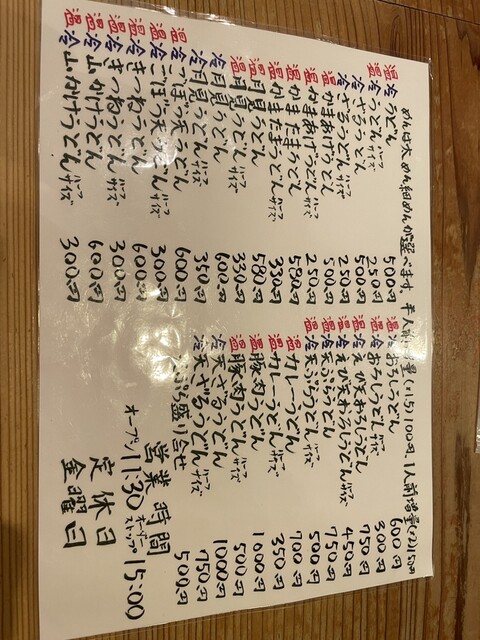 めんは太めん細めんが選べます。半人前増量(1.5)100円 1人前増量(2)150円
温冷 うどん 500円
温冷 うどん ハーフサイズ 250円
冷 ざるうどん 500円
冷 ざるうどん ハーフサイズ 250円
温 かまあげうどん 500円
温 かまあげうどん ハーフサイズ 250円
温 かまたまうどん 580円
温 かまたまうどん ハーフサイズ 330円
温 月見うどん 580円
温 月見うどん ハーフサイズ 330円
冷 月見うどん 600円
冷 月見うどん ハーフサイズ 350円
温冷 ごぼう天うどん 600円
温冷 ごぼう天うどん ハーフサイズ 300円
温冷 きつねうどん 600円
温冷 きつねうどん ハーフサイズ 300円
温冷 山かけうどん 600円
温冷 山かけうどん ハーフサイズ 300円
温冷 おろしうどん 600円
温冷 おろしうどん ハーフサイズ 300円
温冷 えび天おろしうどん 750円
温冷 えび天おろしうどん ハーフサイズ 450円
温冷 天ぷらうどん 750円
温冷 天ぷらうどん ハーフサイズ 500円
温 カレーうどん 700円
温 カレーうどん ハーフサイズ 350円
温 豚肉うどん 1000円
温 豚肉うどん ハーフサイズ 500円
冷 天ざるうどん 1000円
冷 天ざるうどん ハーフサイズ 750円
天ぷら盛り合せ 500円
営業時間
オープン11:30 オーダーストップ15:00
定休日
金曜日